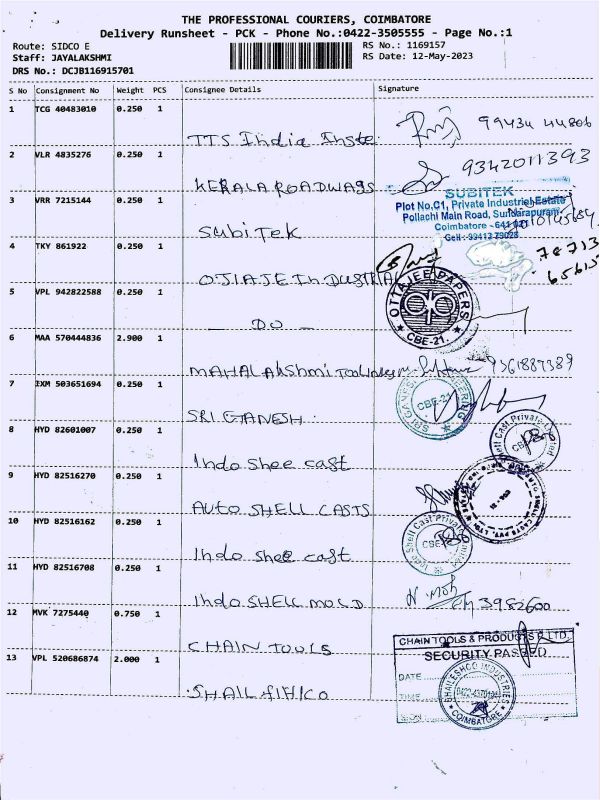 THE PROFESSIONAL COURIERS, COIMBATORE
Delivery Runsheet - PCK - Phone No.:0422-3505555 - Page No.:1
Route: SIDCO E
RS No.: 1169157
Staff: JAYALAKSHMI
RS Date: 12-May-2023
DRS No.: DCJB116915701
S No Consignment No Weight PCS Consignee Details Signature
1 TCG 40483010 0.250 1
TTS India Inste. 99434 44806
2 VLR 4835276 0.250 1
KERALA ROADWAYS 9342011393
3 VRR 7215144 0.250 1
Subitek
SUBITEK
Plot No.C1, Private Industrial Estate
Pollachi Main Road, Sundarapuram,
Coimbatore - 641
Cell: 99413 79028
4 TKY 861922 0.250 1
78713
65615
5 VPL 942822588 0.250 1
DO
OTTAJEE PAPERS
CBE-21.
6 MAA 570444836 2.900 1
MAHALAKshmi 9361887389
7 IXM 503651694 0.250 1
SRI GANESH.
CBE-21
8 HYD 82601007 0.250 1
Indo Shee cast
9 HYD 82516270 0.250 1
AUTO SHELL CASTS
10 HYD 82516162 0.250 1
Indo Shee cast
Indo Shell Cast Private Limited
11 HYD 82516708 0.250 1
Indo SHELL MOLD 3982600
12 MVK 7275440 0.750 1
CHAIN TOOLS
CHAIN TOOLS & PRODUCTS P LTD.
SECURITY PASSED
DATE
TIME
SIGN
13 VPL 520686874 2.000 1
INDUSTRIES
COIMBATORE